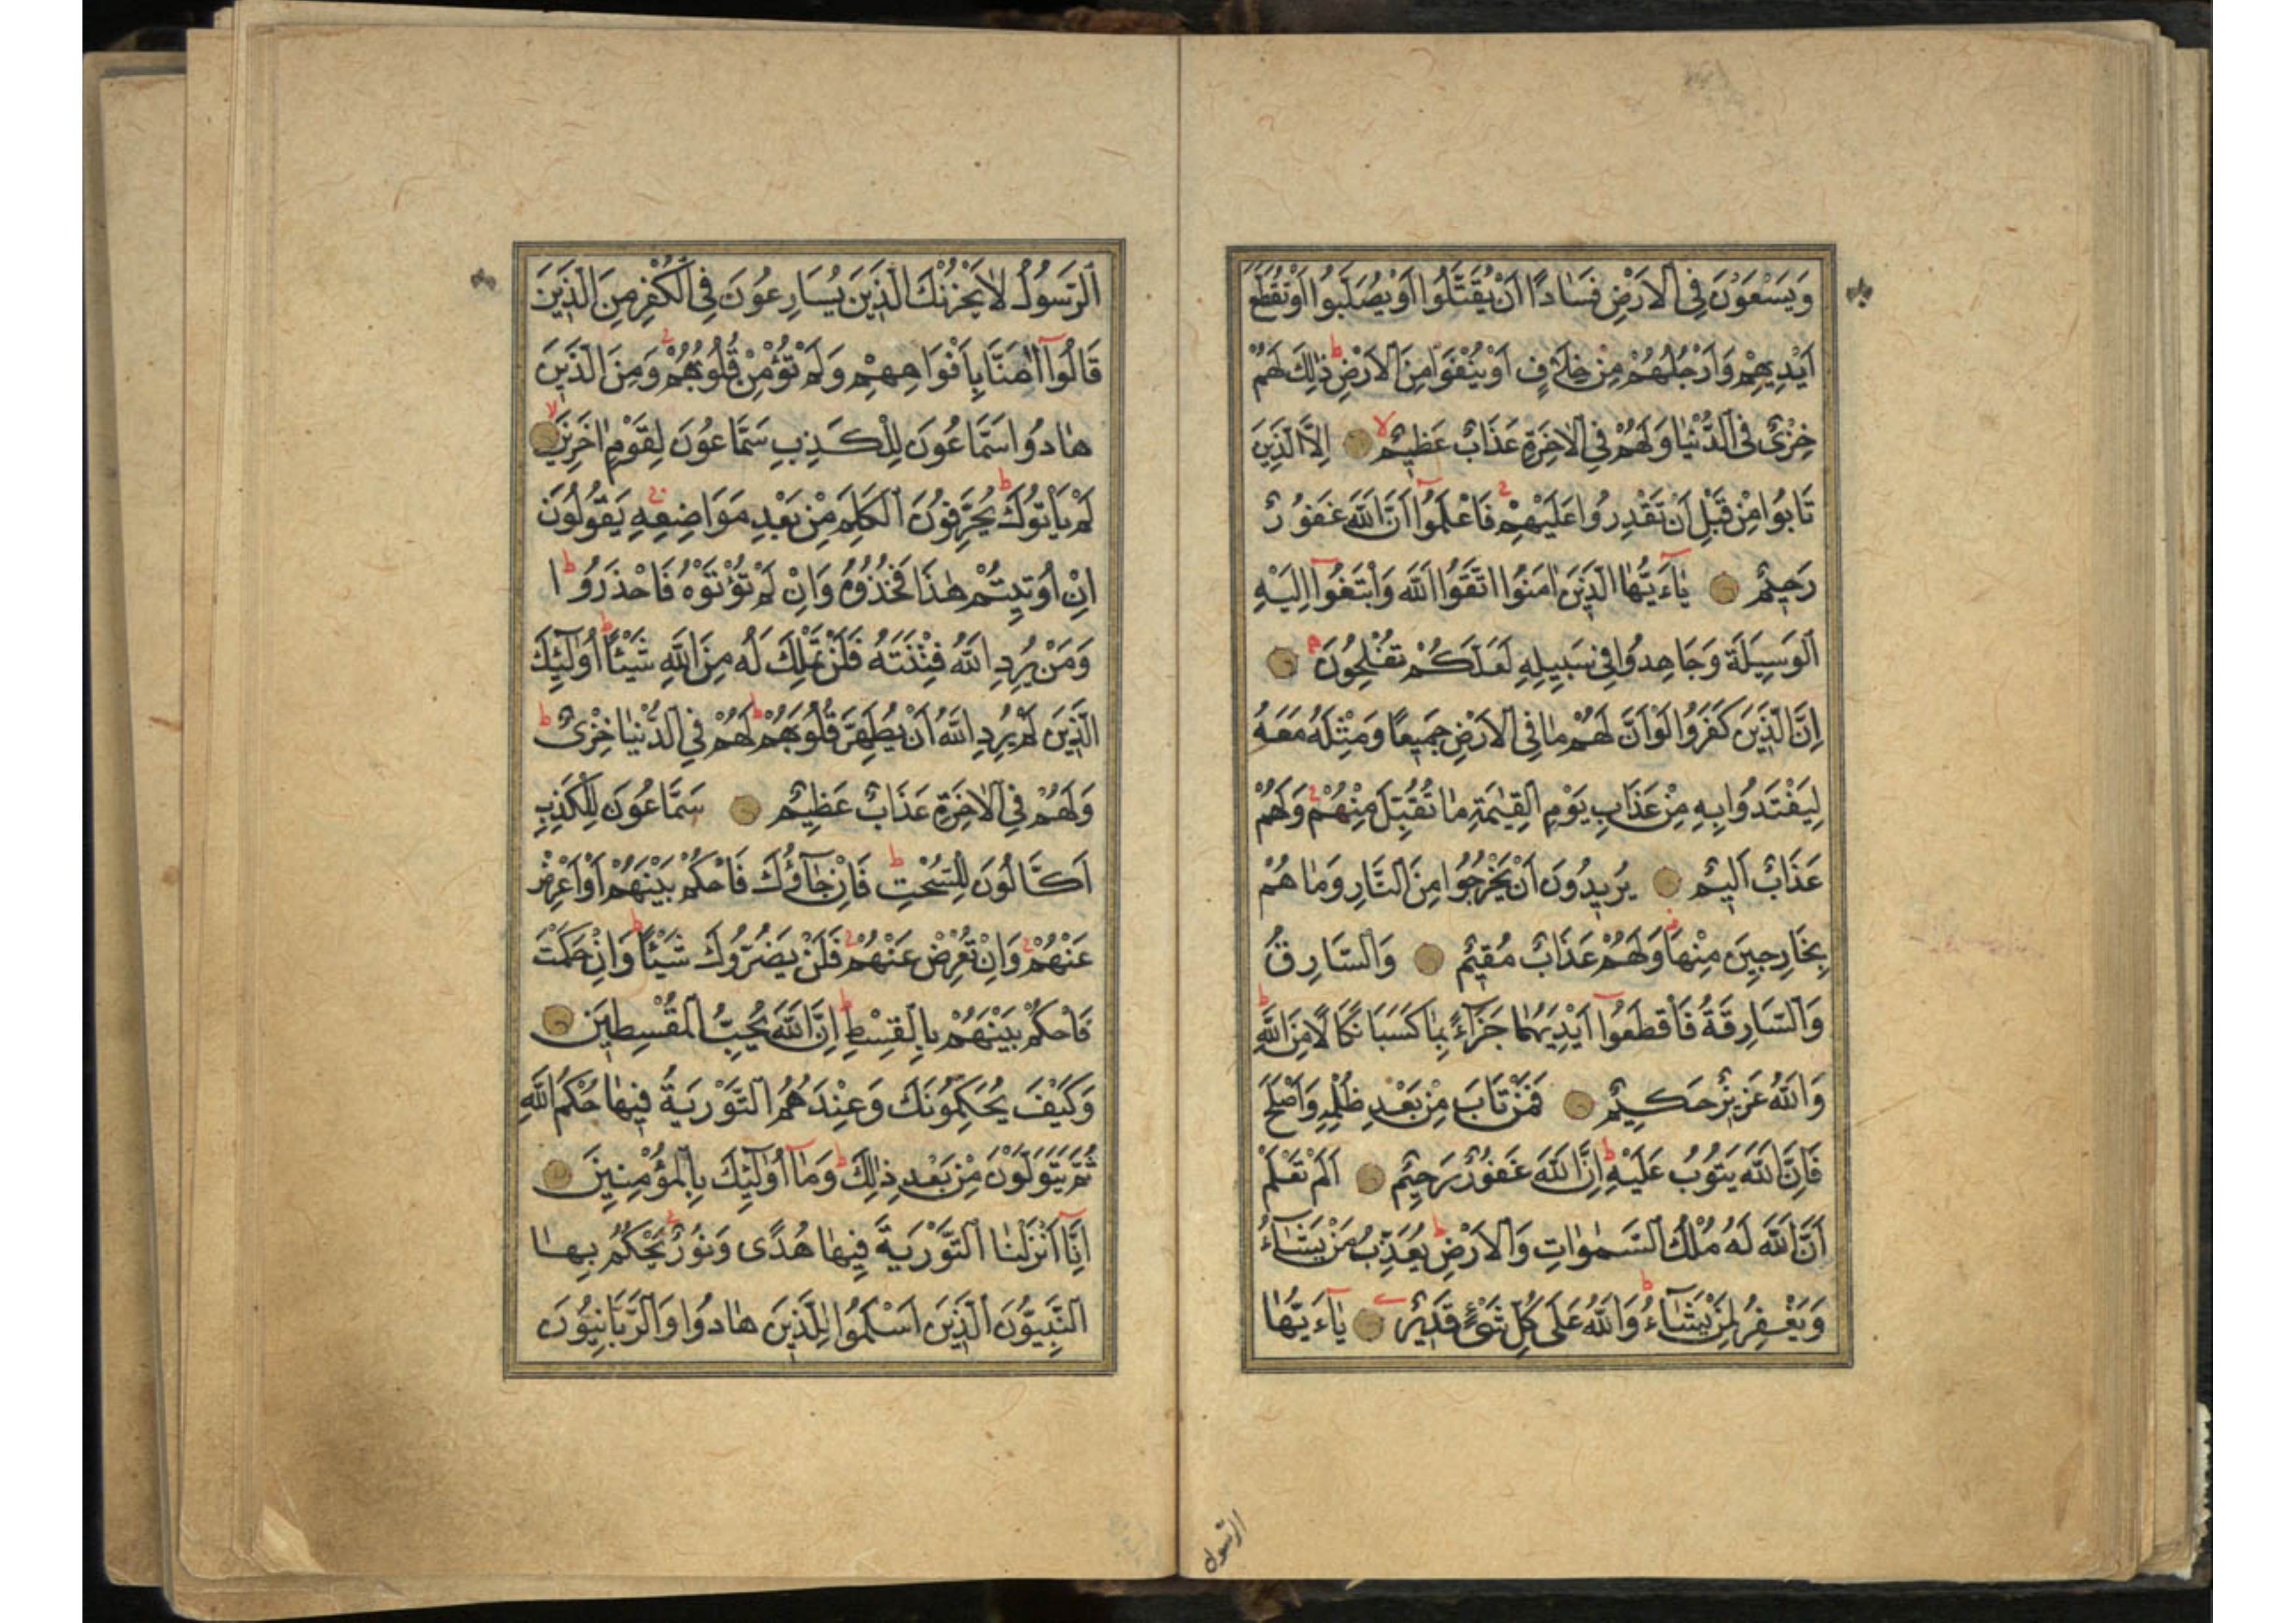 وَيَسْعَوْنَ فِي الْاَرْضِ فَسَادًا اَنْ يُقَتَّلُوا اَوْ يُصَلَّبُوا اَوْ تُقَطَّعَ
اَيْدِيهِمْ وَاَرْجُلُهُمْ مِنْ خِلَافٍ اَوْ يُنْفَوْا مِنَ الْاَرْضِ ذٰلِكَ لَهُمْ
خِزْىٌ فِي الدُّنْيَا وَلَهُمْ فِي الْاٰخِرَةِ عَذَابٌ عَظِيمٌ اِلَّا الَّذِينَ
تَابُوا مِنْ قَبْلِ اَنْ تَقْدِرُوا عَلَيْهِمْ فَاعْلَمُوا اَنَّ اللّٰهَ غَفُورٌ
رَحِيمٌ يَٓاءَيُّهَا الَّذِينَ اٰمَنُوا اتَّقُوا اللّٰهَ وَابْتَغُوا اِلَيْهِ
الْوَسِيلَةَ وَجَاهِدُوا فِي سَبِيلِهِ لَعَلَّكُمْ تُفْلِحُونَ
اِنَّ الَّذِينَ كَفَرُوا لَوْ اَنَّ لَهُمْ مَا فِي الْاَرْضِ جَمِيعًا وَمِثْلَهُ مَعَهُ
لِيَفْتَدُوا بِهِ مِنْ عَذَابِ يَوْمِ الْقِيٰمَةِ مَا تُقُبِّلَ مِنْهُمْ وَلَهُمْ
عَذَابٌ اَلِيمٌ يُرِيدُونَ اَنْ يَخْرُجُوا مِنَ النَّارِ وَمَا هُمْ
بِخَارِجِينَ مِنْهَا وَلَهُمْ عَذَابٌ مُقِيمٌ وَالسَّارِقُ
وَالسَّارِقَةُ فَاقْطَعُوا اَيْدِيَهُمَا جَزَاءً بِمَا كَسَبَا نَكَالًا مِنَ اللّٰهِ
وَاللّٰهُ عَزِيزٌ حَكِيمٌ فَمَنْ تَابَ مِنْ بَعْدِ ظُلْمِهِ وَاَصْلَحَ
فَاِنَّ اللّٰهَ يَتُوبُ عَلَيْهِ اِنَّ اللّٰهَ غَفُورٌ رَحِيمٌ اَلَمْ تَعْلَمْ
اَنَّ اللّٰهَ لَهُ مُلْكُ السَّمٰوَاتِ وَالْاَرْضِ يُعَذِّبُ مَنْ يَشَاءُ
وَيَغْفِرُ لِمَنْ يَشَاءُ وَاللّٰهُ عَلٰى كُلِّ شَيْءٍ قَدِيرٌ يَٓاءَيُّهَا
الرسول
الرَّسُولُ لَا يَحْزُنْكَ الَّذِينَ يُسَارِعُونَ فِي الْكُفْرِ مِنَ الَّذِينَ
قَالُوا اٰمَنَّا بِاَفْوَاهِهِمْ وَلَمْ تُؤْمِنْ قُلُوبُهُمْ وَمِنَ الَّذِينَ
هَادُوا سَمَّاعُونَ لِلْكَذِبِ سَمَّاعُونَ لِقَوْمٍ اٰخَرِينَ
لَمْ يَأْتُوكَ يُحَرِّفُونَ الْكَلِمَ مِنْ بَعْدِ مَوَاضِعِهِ يَقُولُونَ
اِنْ اُوتِيتُمْ هٰذَا فَخُذُوهُ وَاِنْ لَمْ تُؤْتَوْهُ فَاحْذَرُوا
وَمَنْ يُرِدِ اللّٰهُ فِتْنَتَهُ فَلَنْ تَمْلِكَ لَهُ مِنَ اللّٰهِ شَيْئًا اُولٰئِكَ
الَّذِينَ لَمْ يُرِدِ اللّٰهُ اَنْ يُطَهِّرَ قُلُوبَهُمْ لَهُمْ فِي الدُّنْيَا خِزْىٌ
وَلَهُمْ فِي الْاٰخِرَةِ عَذَابٌ عَظِيمٌ سَمَّاعُونَ لِلْكَذِبِ
اَكَّالُونَ لِلسُّحْتِ فَاِنْ جَاؤُكَ فَاحْكُمْ بَيْنَهُمْ اَوْ اَعْرِضْ
عَنْهُمْ وَاِنْ تُعْرِضْ عَنْهُمْ فَلَنْ يَضُرُّوكَ شَيْئًا وَاِنْ حَكَمْتَ
فَاحْكُمْ بَيْنَهُمْ بِالْقِسْطِ اِنَّ اللّٰهَ يُحِبُّ الْمُقْسِطِينَ
وَكَيْفَ يُحَكِّمُونَكَ وَعِنْدَهُمُ التَّوْرٰيةُ فِيهَا حُكْمُ اللّٰهِ
ثُمَّ يَتَوَلَّوْنَ مِنْ بَعْدِ ذٰلِكَ وَمَا اُولٰئِكَ بِالْمُؤْمِنِينَ
اِنَّا اَنْزَلْنَا التَّوْرٰيةَ فِيهَا هُدًى وَنُورٌ يَحْكُمُ بِهَا
النَّبِيُّونَ الَّذِينَ اَسْلَمُوا لِلَّذِينَ هَادُوا وَالرَّبَّانِيُّونَ